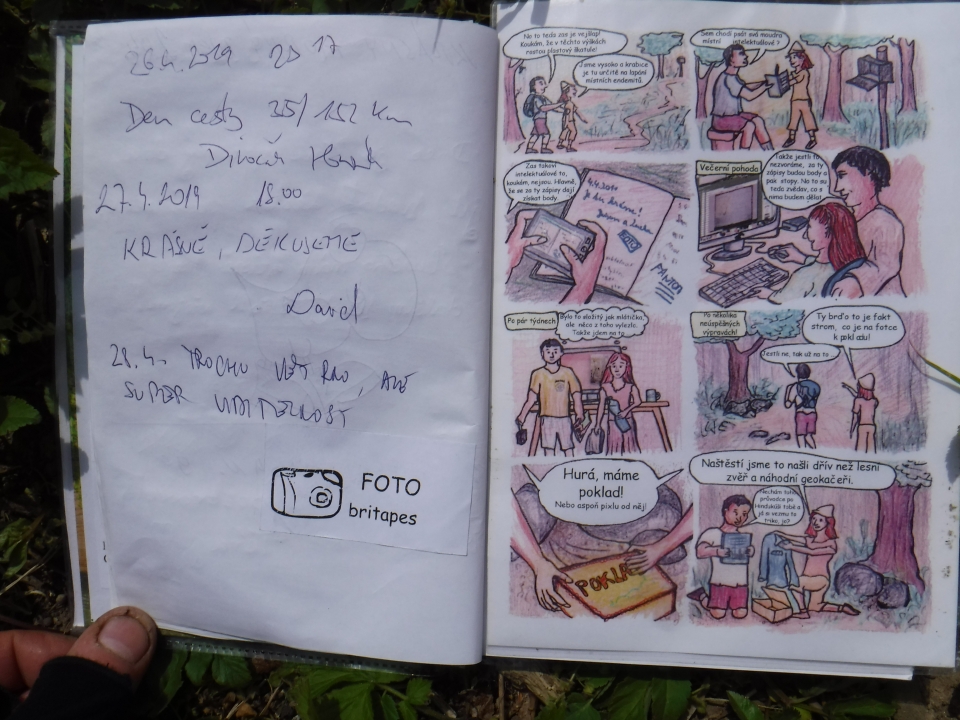 26.4.2019 20 17
Den cesty 35/152 Km
27.4.2019 18.00
KRÁSNÉ, DĚKUJEME
David
28.4. TROCHU VĚTRNO, ALE
SUPER
FOTO
britapes
No to teda zas je vejšlap!
Koukám, že v těchto výškách
rostou plastový škatule!
Jsme vysoko a krabice
je tu určitě na lapání
místních endemitů.
Sem chodí psát svá moudra
místní intelektuálové?
Zas takoví
intelektuálové to,
koukám, nejsou. Hlavně,
že se za ty zápisy dají
získat body.
4.4.2010
Je tu krásně!
Večerní pohoda
Takže jestli to
nezvoráme, za ty
zápisy budou body a
pak stopy. No to su
teda zvědav, co s
nima budem dělat.
Po pár týdnech
Bylo to složitý jak mlátička,
ale něco z toho vylezlo.
Takže jdem na to.
Po několika
neúspěšných
výpravách!
Jestli ne, tak už na to ...
Ty brďo to je fakt
strom, co je na fotce
k pokladu!
Hurá, máme
poklad!
Nebo aspoň pixlu od něj!
POKLAD
Naštěstí jsme to našli dřív než lesní
zvěř a náhodní geokačeři.
Nechám tady
průvodce po
Hindúkúši